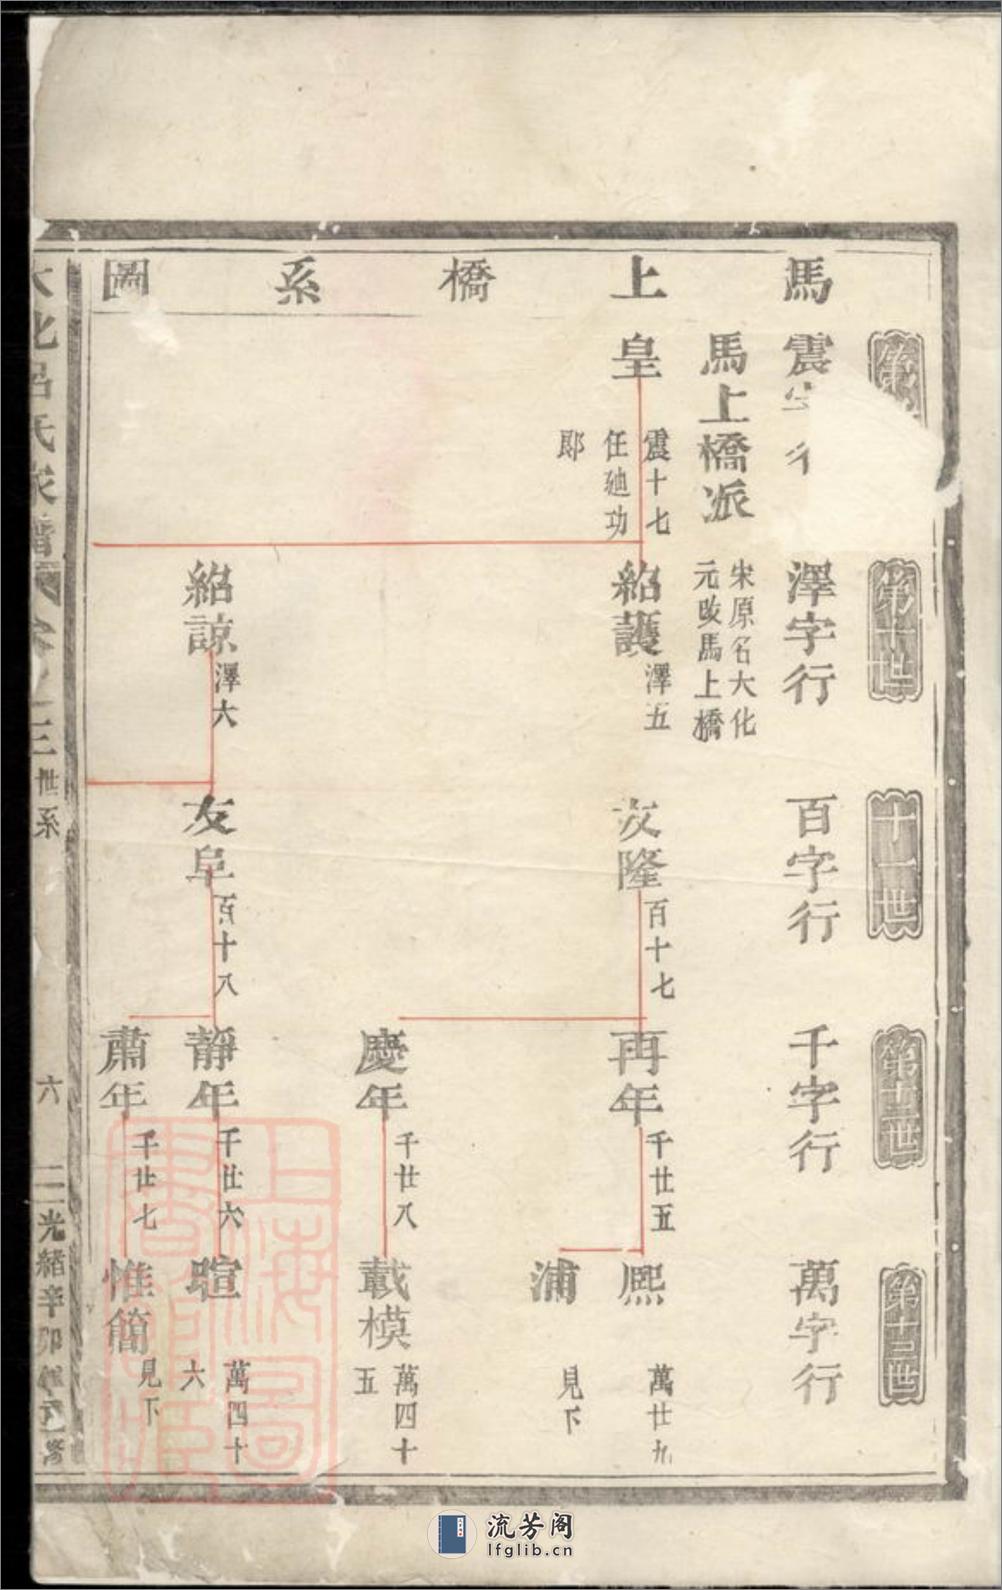 馬上橋系圖
第
震
第十世
澤字行
十一世
百字行
第十二世
千字行
第十三世
萬字行
馬上橋派
宋原名大化
元改馬上橋
皇
震十七
任廸功
郎
紹護
澤五
友隆
百十七
再年
千廿五
熙
萬廿九
浦
見下
慶年
千廿八
載模
萬四十
五
紹諒
澤六
友阜
百十八
靜年
千廿六
暄
萬四十
六
肅年
千廿七
惟簡
見下
大化呂氏家譜
卷之三
世系
六
光緒辛卯
上海圖書館藏
流芳阁
lfglib.cn